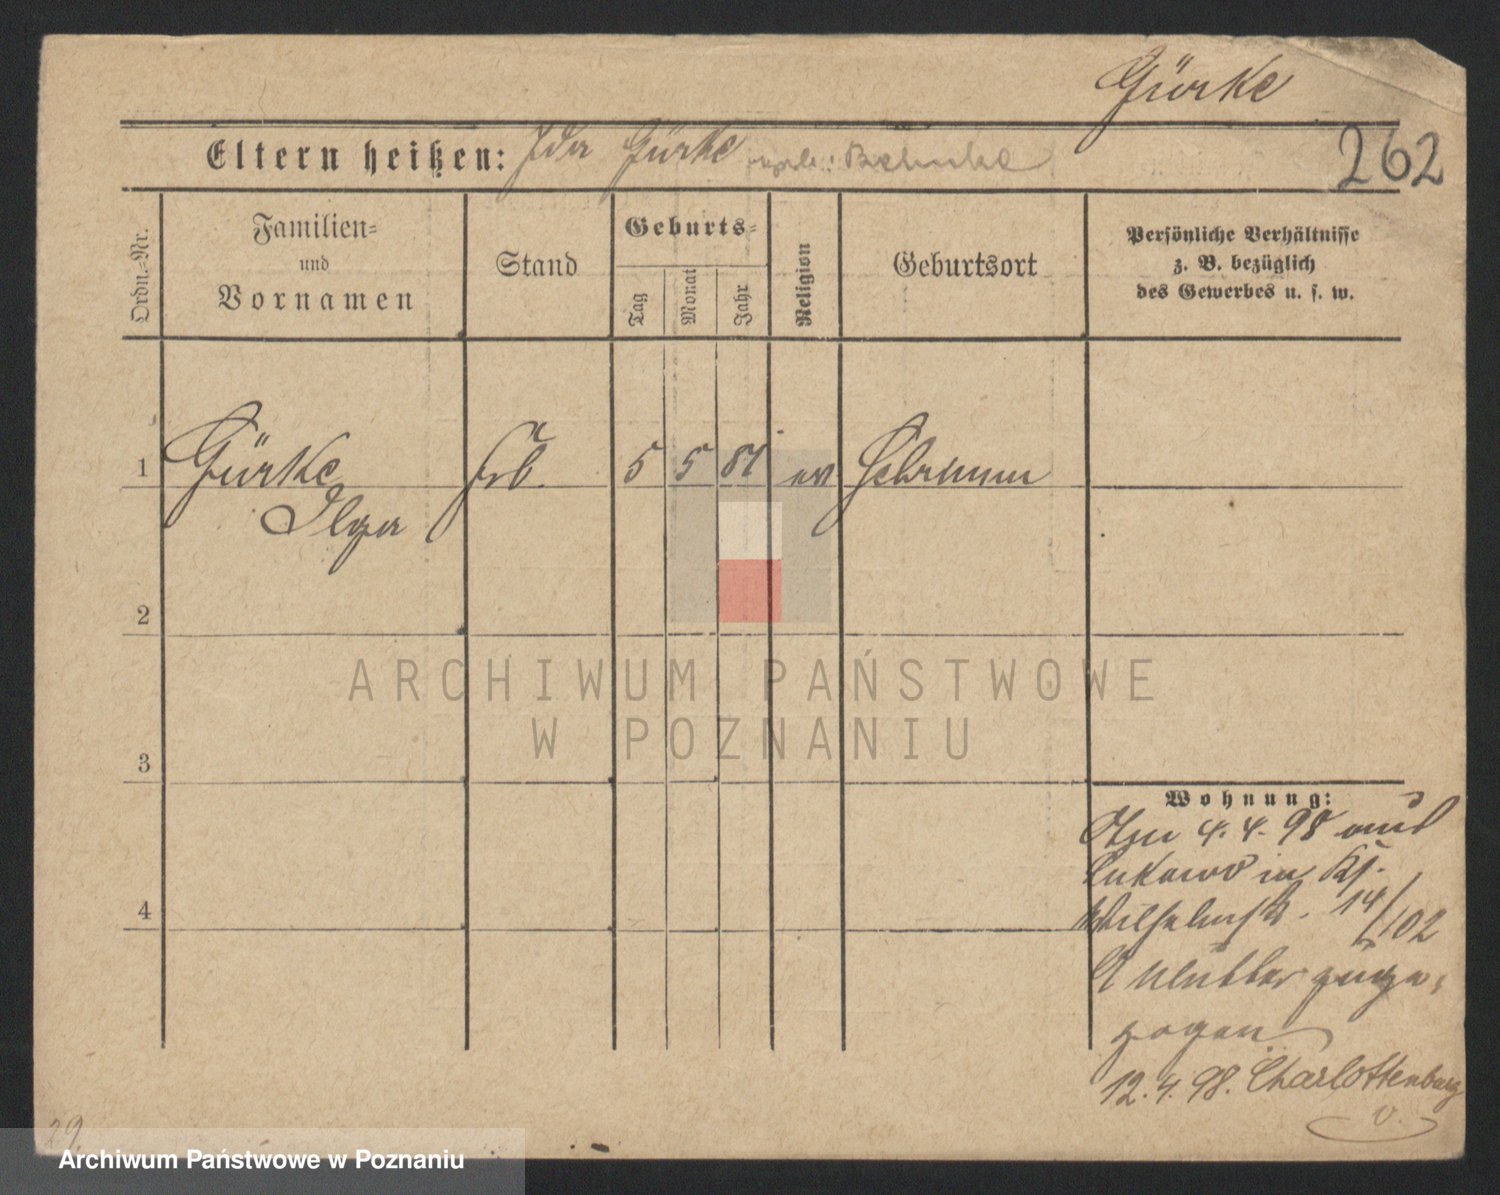 Gürke
262
Eltern heißen: Ida Gürke
Ordn.-Nr.
Familien- und Vornamen
Stand
Geburts-
Tag
Monat
Jahr
Religion
Geburtsort
Persönliche Verhältnisse
z. B. bezüglich
des Gewerbes u. s. w.
1 Gürke 5 5 81 ev Schrimm
Olga
2
3
4
Wohnung:
4. 4. 98 aus
in
14/102
Mutter zuge-
zogen
12. 4. 98. Charlottenburg
v.
29.
ARCHIWUM PAŃSTWOWE
W POZNANIU
Archiwum Państwowe w Poznaniu